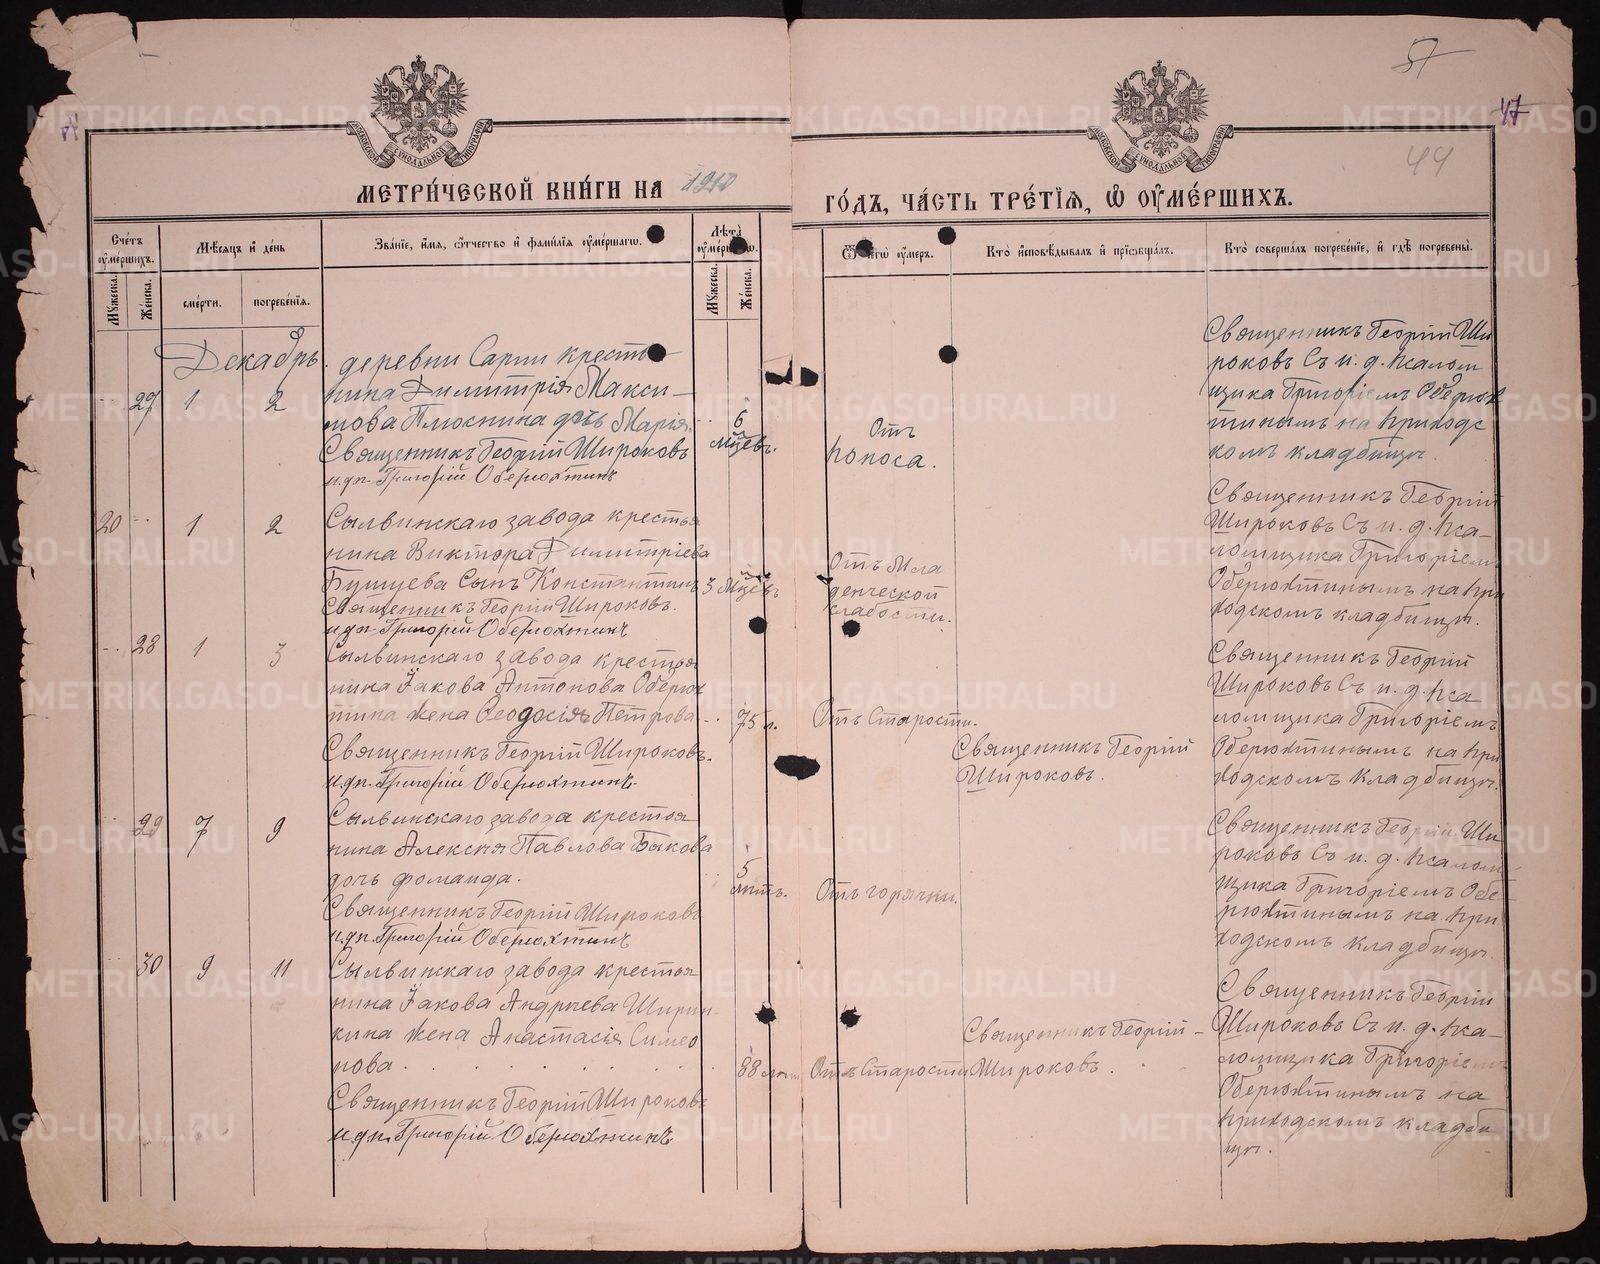 57
47
44
МОСКОВСКОЙ СѴНОДАЛЬНОЙ ТИПОГРАФІИ
МОСКОВСКОЙ СѴНОДАЛЬНОЙ ТИПОГРАФІИ
МЕТРИ́ЧЕСКОЙ КНИ́ГИ НА 1910
ГО́ДЪ, ЧА́СТЬ ТРЕ́ТІѦ, Ѡ ОУМЕ́РШИХЪ.
Сче́тъ оуме́ршихъ.
Мѣ́сѧцъ и де́нь
Зва́нїе, и́мѧ, о́тчество и фами́лїѧ оуме́ршагѡ.
Лѣ́та оуме́ршагѡ.
Ѿ чегѡ̀ оу́меръ.
Кто̀ и҆сповѣ́дывалъ и҆ прїѡбща́лъ.
Кто̀ соверша́лъ погребе́нїе, и҆ гдѣ̀ погребены̀.
Мꙋ́жеска.
Же́нска.
сме́рти.
погребе́нїѧ.
Мꙋ́жеска.
Же́нска.
Декабрь.
29 1 2
деревни Сарги кресть
нина Димитрія Макси-
мова Плюснина дочь Марія
Священникъ Георгій Широковъ
и.д.п. Григорій Оберюхтинъ
6
мцевъ.
Отъ
поноса.
Священникъ Георгій Ши
роковъ Съ и. д. псалом
щика Григоріемъ Оберюх
тинымъ на приходс
комъ кладбищѣ.
20 1 2
Сылвинскаго завода крестья
нина Виктора Димитріева
Бушуева Сынъ Константинъ
Священникъ Георгій Широковъ.
и.д.п. Григорій Оберюхтинъ
3 мцевъ
Отъ Мла
денческой
слабости.
Священникъ Георгій
Широковъ Съ и. д. пса-
ломщика Григоріемъ
Оберюхтинымъ на при
ходскомъ кладбищѣ.
28 1 3
Сылвинскаго завода крестья
нина Іакова Антонова Оберюх
тина жена Ѳеодосія Петрова
Священникъ Георгій Широковъ.
и.д.п. Григорій Оберюхтинъ.
75 л.
Отъ Старости.
Священникъ Георгій
Широковъ.
Священникъ Георгій
Широковъ Съ и. д. пса
ломщика Григоріемъ
Оберюхтинымъ на при
ходскомъ кладбищѣ.
29 7 9
Сылвинскаго завода крестья
нина Алексія Павлова Быкова
дочь Фомаида.
Священникъ Георгій Широковъ
и.д.п. Григорій Оберюхтинъ
5
лѣтъ.
Отъ горячки.
Священникъ Георгій Ши
роковъ Съ и. д. псалом
щика Григоріемъ Обе
рюхтинымъ на при
ходскомъ кладбищѣ.
30 9 11
Сылвинскаго завода крестья
нина Іакова Андреева Ширин-
кина жена Анастасія Симео
нова
Священникъ Георгій Широковъ
и.д.п. Григорій Оберюхтинъ
88 лѣтъ
Отъ Старости
Священникъ Георгій
Широковъ.
Священникъ Георгій
Широковъ Съ и. д. пса-
ломщика Григоріемъ
Оберюхтинымъ на
приходскомъ кладби
щѣ.
METRIKI.GASO-URAL.RU